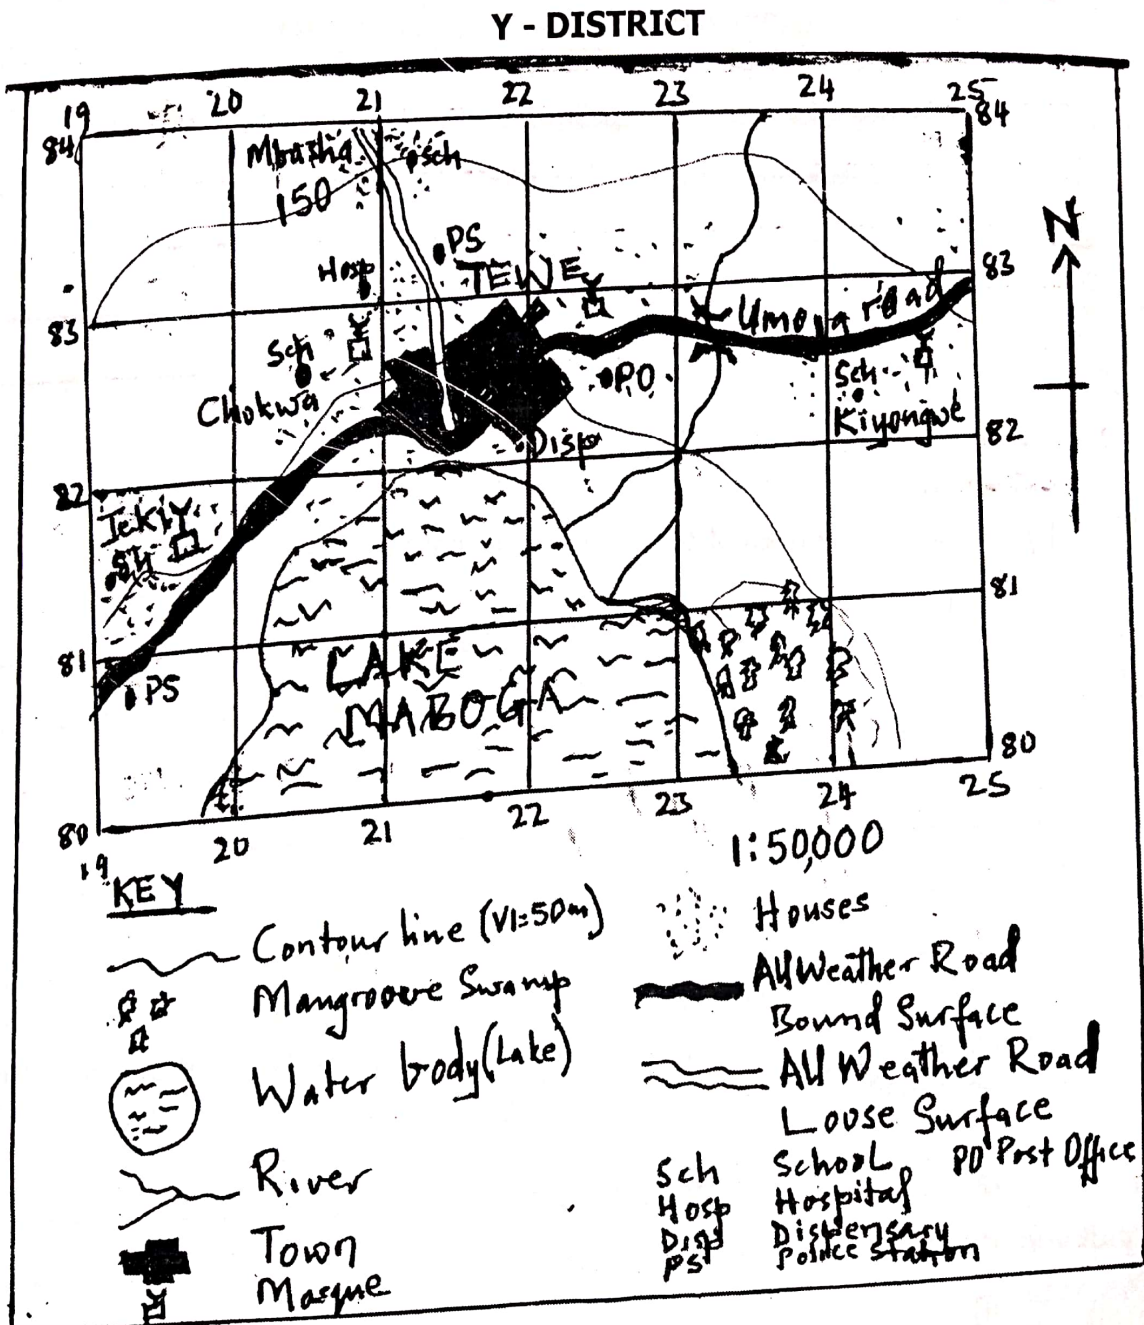 Y - DISTRICT
19 20 21 22 23 24 25
84 84
Mbasha Sch
150
PS
Hosp TEWE
83 83
Umoya road
Sch
PO Sch
Chokwa Kiyongwe
Disp
82 82
Sh
81 81
PS
LAKE
MABOGA
80 80
19 20 21 22 23 24 25
1:50,000
KEY
Contour line (VI=50m)
Mangroove Swamp
Water body (Lake)
River
Town
Mosque
Houses
All Weather Road
Bound Surface
All Weather Road
Louse Surface
Sch School PO Post Office
Hosp Hospital
Disp Dispensary
PS Police Station
N